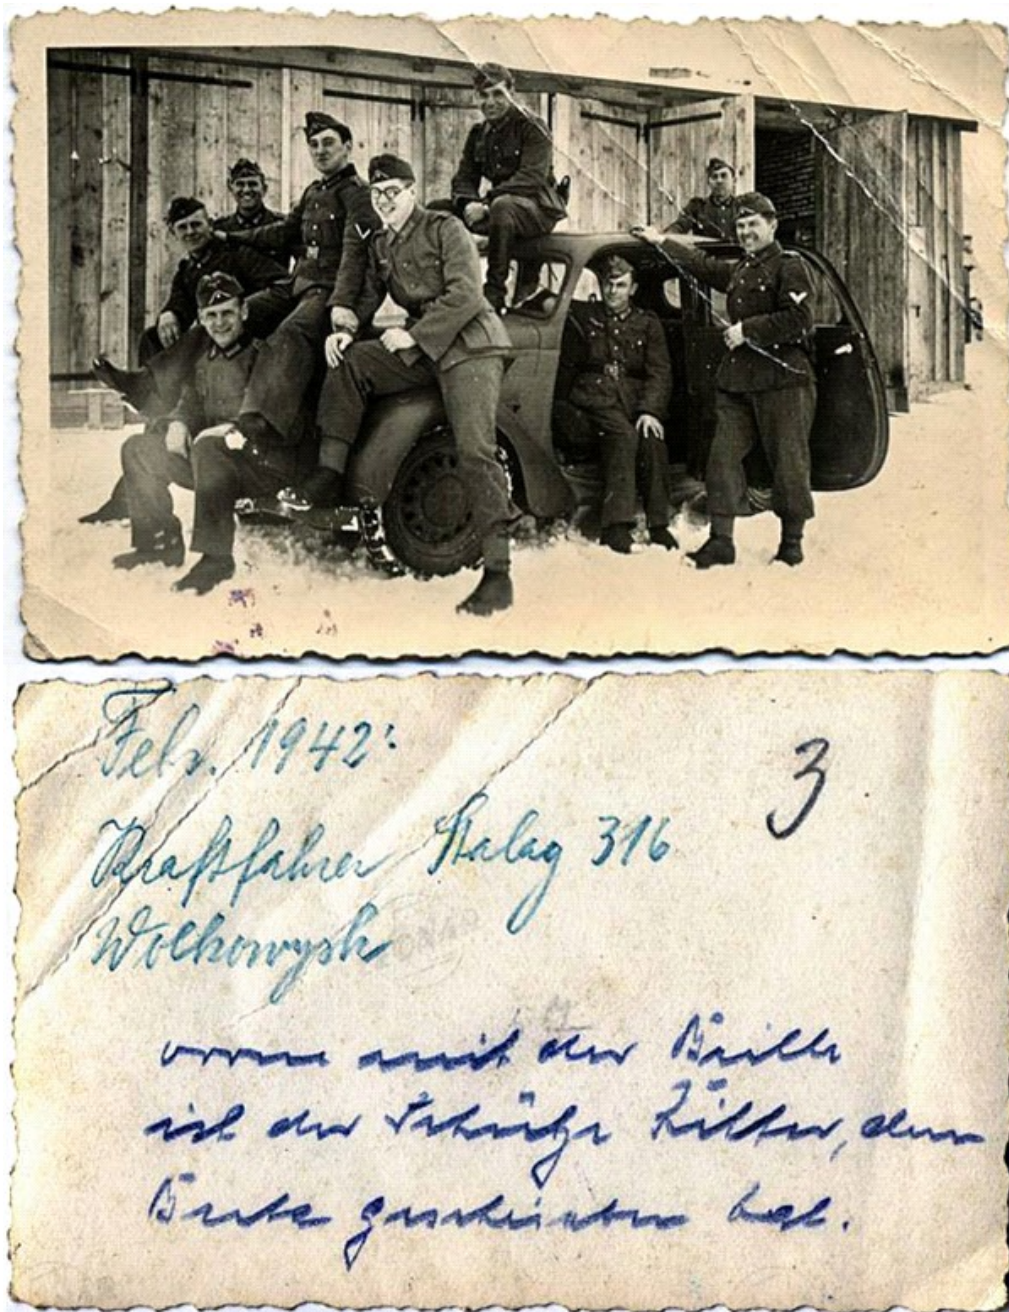 Febr. 1942:
3
Kraftfahrer Stalag 316
Wolkowysk
vorne mit der Brille
ist der Schütze, der
Karte geschrieben hat.